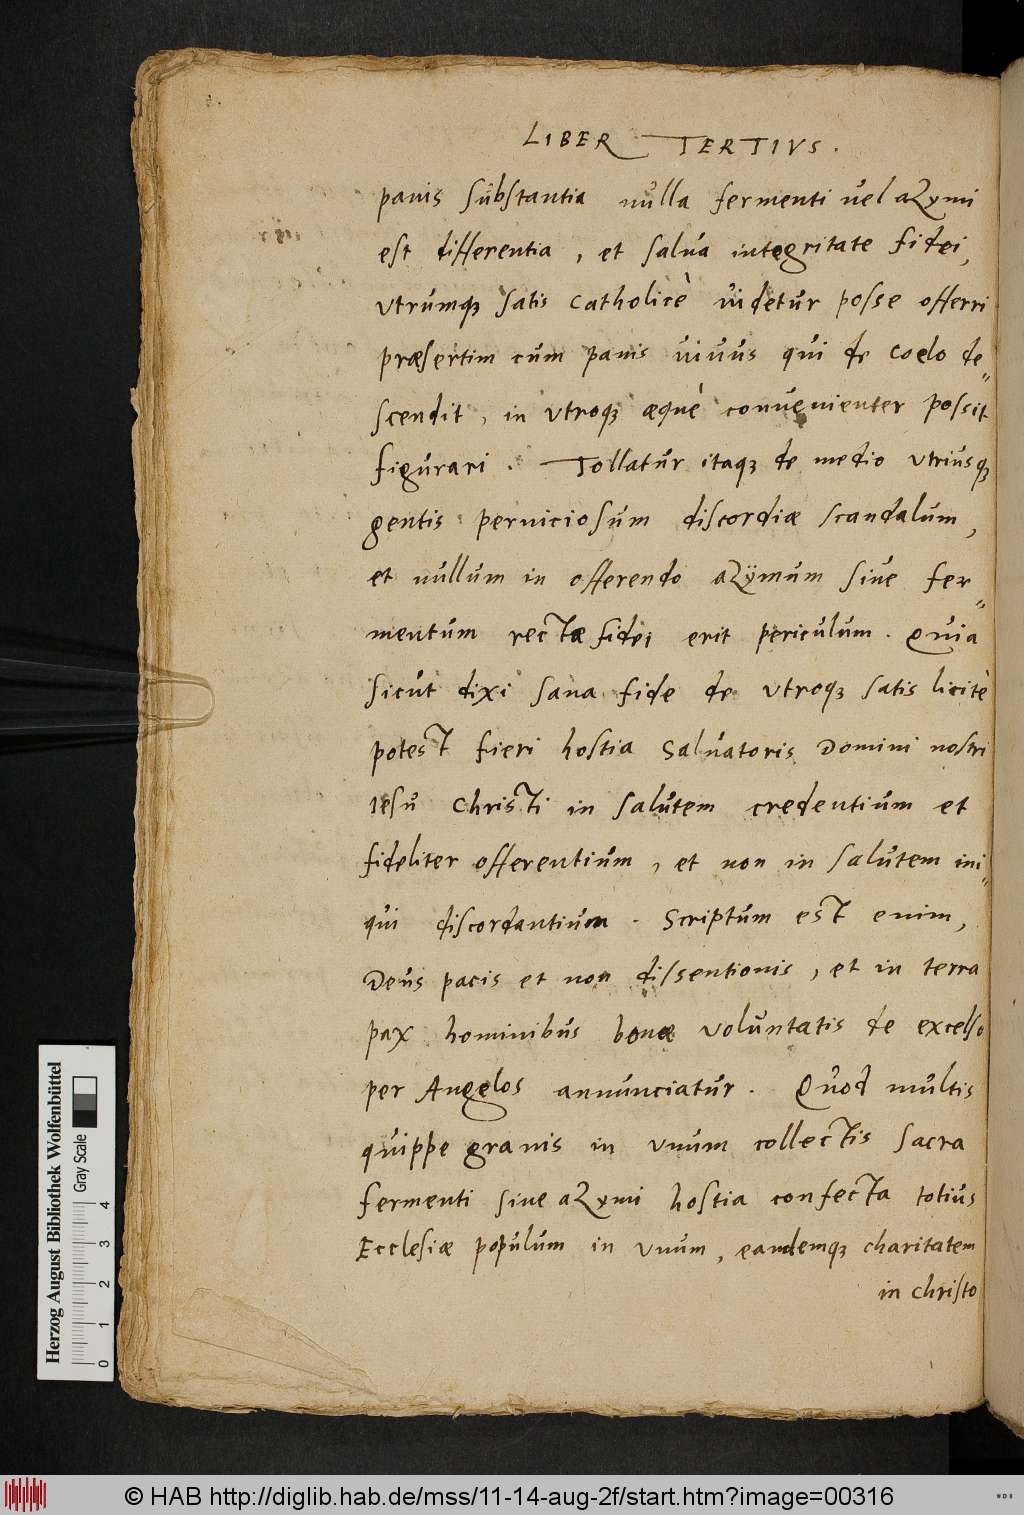 LIBER TERTIVS.
panis substantia nulla fermenti vel azymi
est differentia, et salua integritate fidei,
vtrumqꝫ satis catholicè uidetur posse offerri
præsertim cum panis uiuus qui de coelo de„
scendit, in vtroqꝫ æquè conuenienter possit
figurari. Tollatur itaqꝫ de medio vtriusqꝫ
gentis perniciosum discordiæ scandalum,
et nullum in offerendo azymum siue fer„
mentum rectæ fidei erit periculum. Quia
sicut dixi sana fide de vtroqꝫ satis licitè
potest fieri hostia Saluatoris Domini nostri
Iesu Christi in salutem credentium et
fideliter offerentium, et non in salutem ini„
qui discordantium. Scriptum est enim,
Deus pacis et non dissentionis, et in terra
pax hominibus bonæ voluntatis de excelso
per Angelos annunciatur. Quod multis
quippe granis in vnum collectis sacra
fermenti siue azymi hostia confecta totius
Ecclesiæ populum in vnum, eandemqꝫ charitatem
in christo
Herzog August Bibliothek Wolfenbüttel
Gray Scale
0 1 2 3 4
© HAB http://diglib.hab.de/mss/11-14-aug-2f/start.htm?image=00316